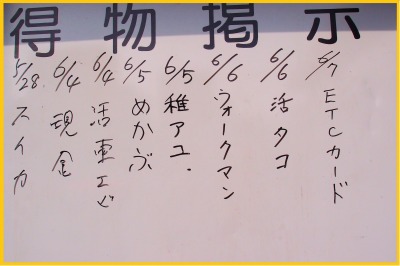 得物掲示
5/28 スイカ
6/4 現金
6/4 活車エビ
6/5 めかぶ
6/5 稚アユ.
6/6 ウォークマン
6/6 活タコ
6/7 ETCカード